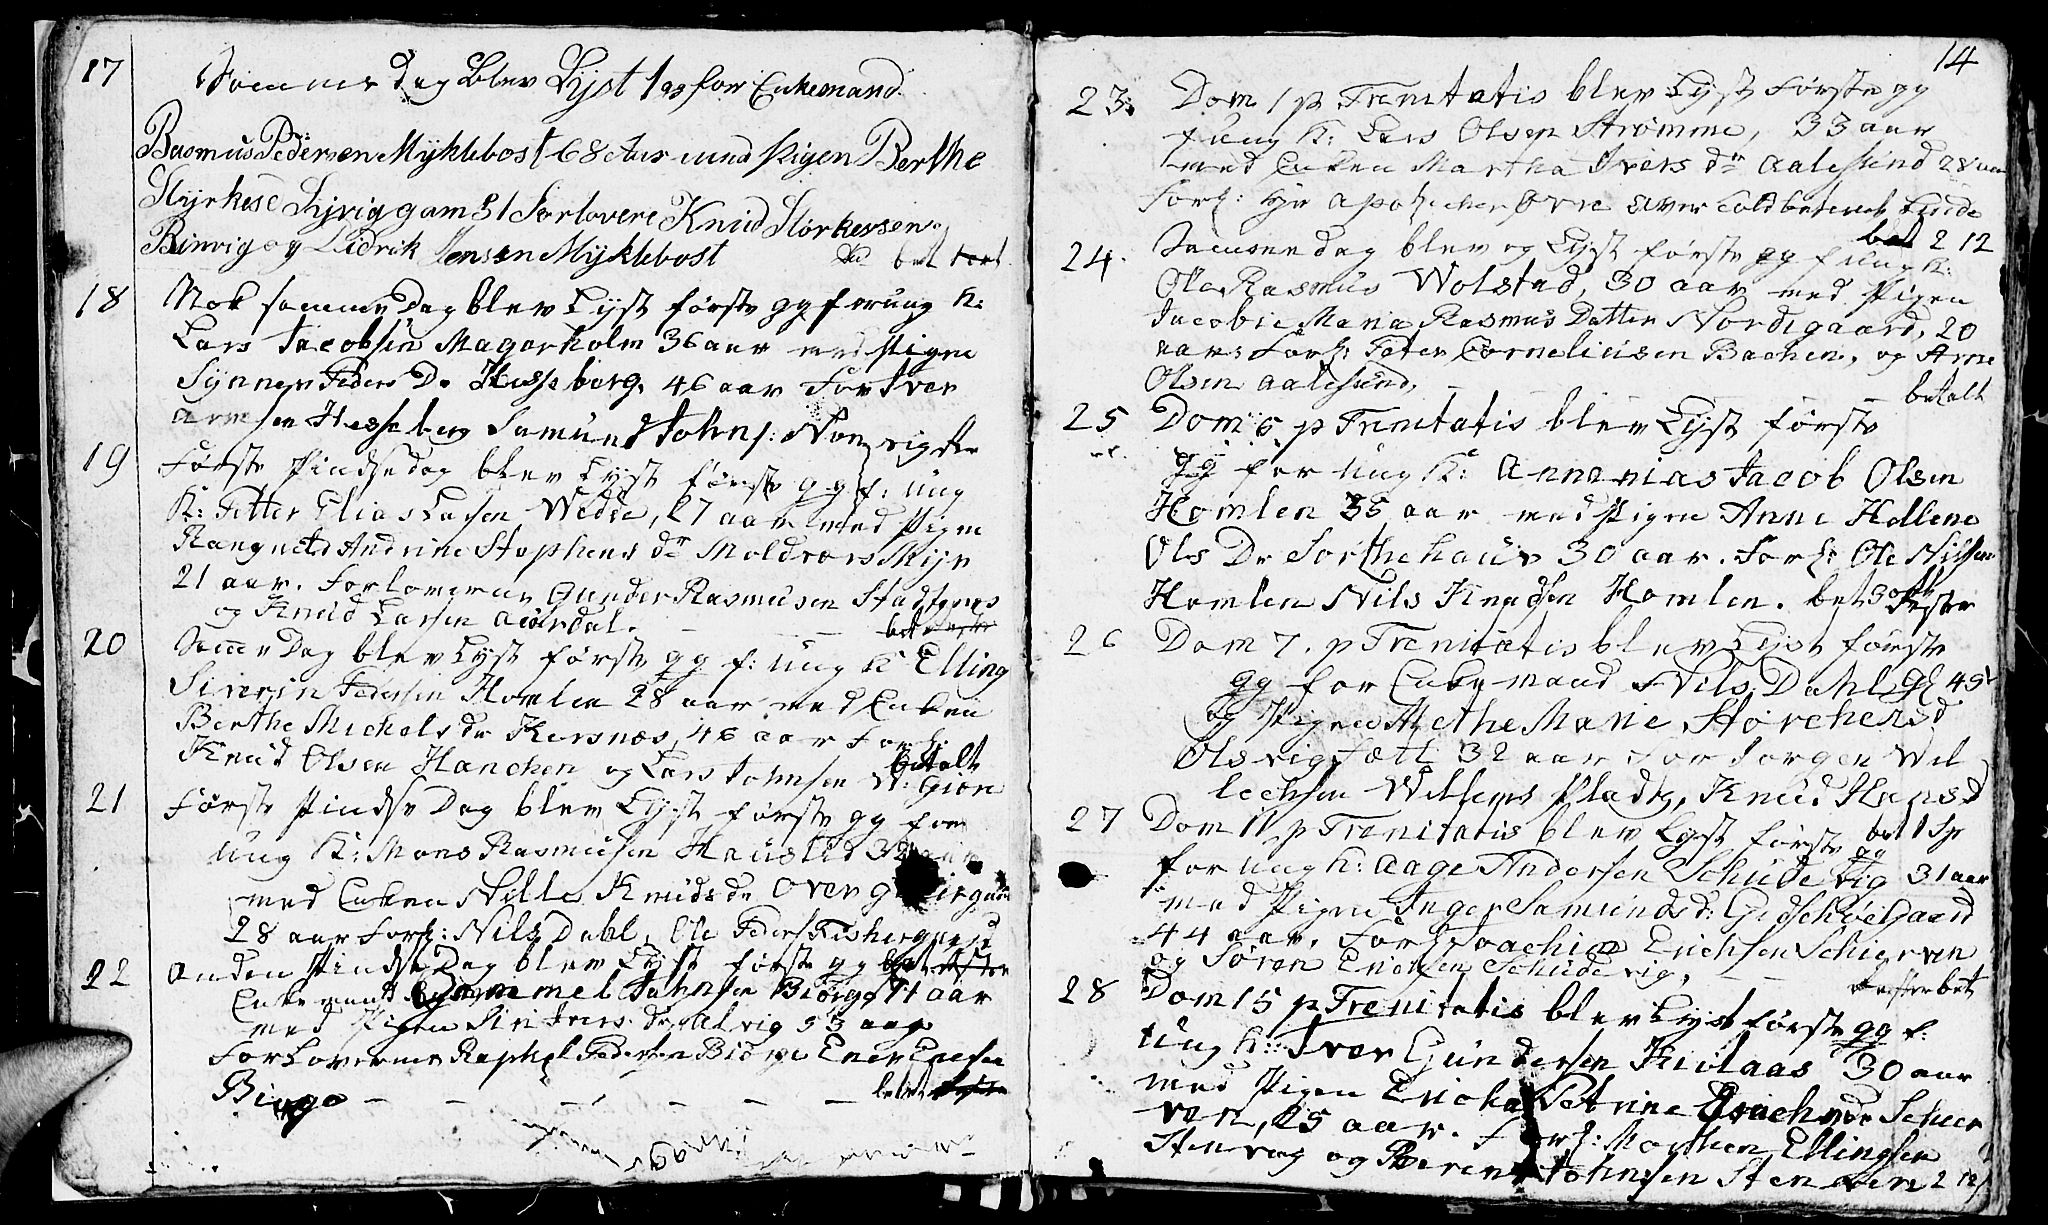 17 Samme dag blev Lyst 1 gg for Enkemand
Rasmus Pedersen Myklebost 68 Aar med Pigen Berthe
Styrkesd Lyvig gam 51 Forlovere Knud Storkersen
Binvig og Ludvik Jensen Myklebost bet
18 Nok samme Dag blev Lyst første gg for ung K:
Lars Jacobsen Magerholm 36 aar med Pigen
Synnev Peders Dr Hessberg, 46 aar For Iver
Arnesen Hesseberg Samund Johns:
19 Første Pindsedag blev Lyst første gg f: ung
K: Petter Elias Larsen Wedde, 27 aar med Pigen
Rangnild Andrine Stephens dr Moldvors Myr
21 aar. Forloverne Gunder Rasmusen Stadsnes
og Knud Larsen Aurdal. bet
20 Same Dag blev Lyst første gg f: ung K Elling
Siverin Pedersen Homlen 28 aar med Enken
Berthe Michels dr Kersnæs, 46 aar Forl:
Knud Olsen Hanchen og Lars Johnsen W: Giøn
betalt
21 Første Pindse Dag blev Lyst første gg for
ung K: Mons Rasmusen Haustad 32 aar
med Enken Nille Knuds dr Oven
28 aar Forl: Nils Dahl, Ole Peders
22 Anden Pindse Dag blev Lyst første gg
Enkemand Gammel Johnsen Biørge 71 aar
med Pigen Siri Ivers dr 53 aar
Forloverne Raphel Pedersen Biørge Ener Enersen
Biørge — — — — — bet
14
23. Dom 1 p Trenitatis blev Lyst Første gg
f ung K: Lars Olsen Strømme, 33 aar
med Enken Martha Ivers dr Aalesund 28 aar
Forl: Hr Apothecher Øvre
bet 2 12
24. Samme dag blev og Lyst første gg f ung K:
Ole Rasmus Wolstad, 30 aar med Pigen
Jacobie Maria Rasmus Datter Nordegaard, 20
aar: Forl: Peter Cornelieusen Bachen, og Arne
Olsen Aalesund, — — betalt
25 Dom 6 p Trenitatis blev Lyst første
gg for ung K: Annanias Jacob Olsen
Homlen 35 aar med Pigen Anne Hellene
Ols Dr Sorthehaug 30 aar. Forl: Ole Nilsen
Homlen Nils Knudsen Homlen. bet
26 Dom 7. p Trenitatis blev Lyst første
gg for Enkemand Nils Dahl Gl 49
og Pigen Methe Marie Storchersd
Olsvig fætt 32 aar For Jorgen Wil
lochsen Willems Plads, Knud Hansd
bet 1 Sp
27 Dom 11 p Trenitatis blev Lyst første gg
for ung K: Aage Andersen Schudevig 31 aar
med Pigen Inger Samundsd: Gidschøegaard
44 aar. Forl: Joachim Erichsen Schierven
og Søren Erichsen Schudevig, — — bet
28 Dom 15 p Trenitatis blev Lyst første gg f:
ung K: Iver Gundersen Kiølaas 30 aar
med Pigen Ericka Petrine Erichsdr Schier
ven, 25 aar. Forl: Morthen Ellingsen
Stenvog og Berent Johnsen Sten 2